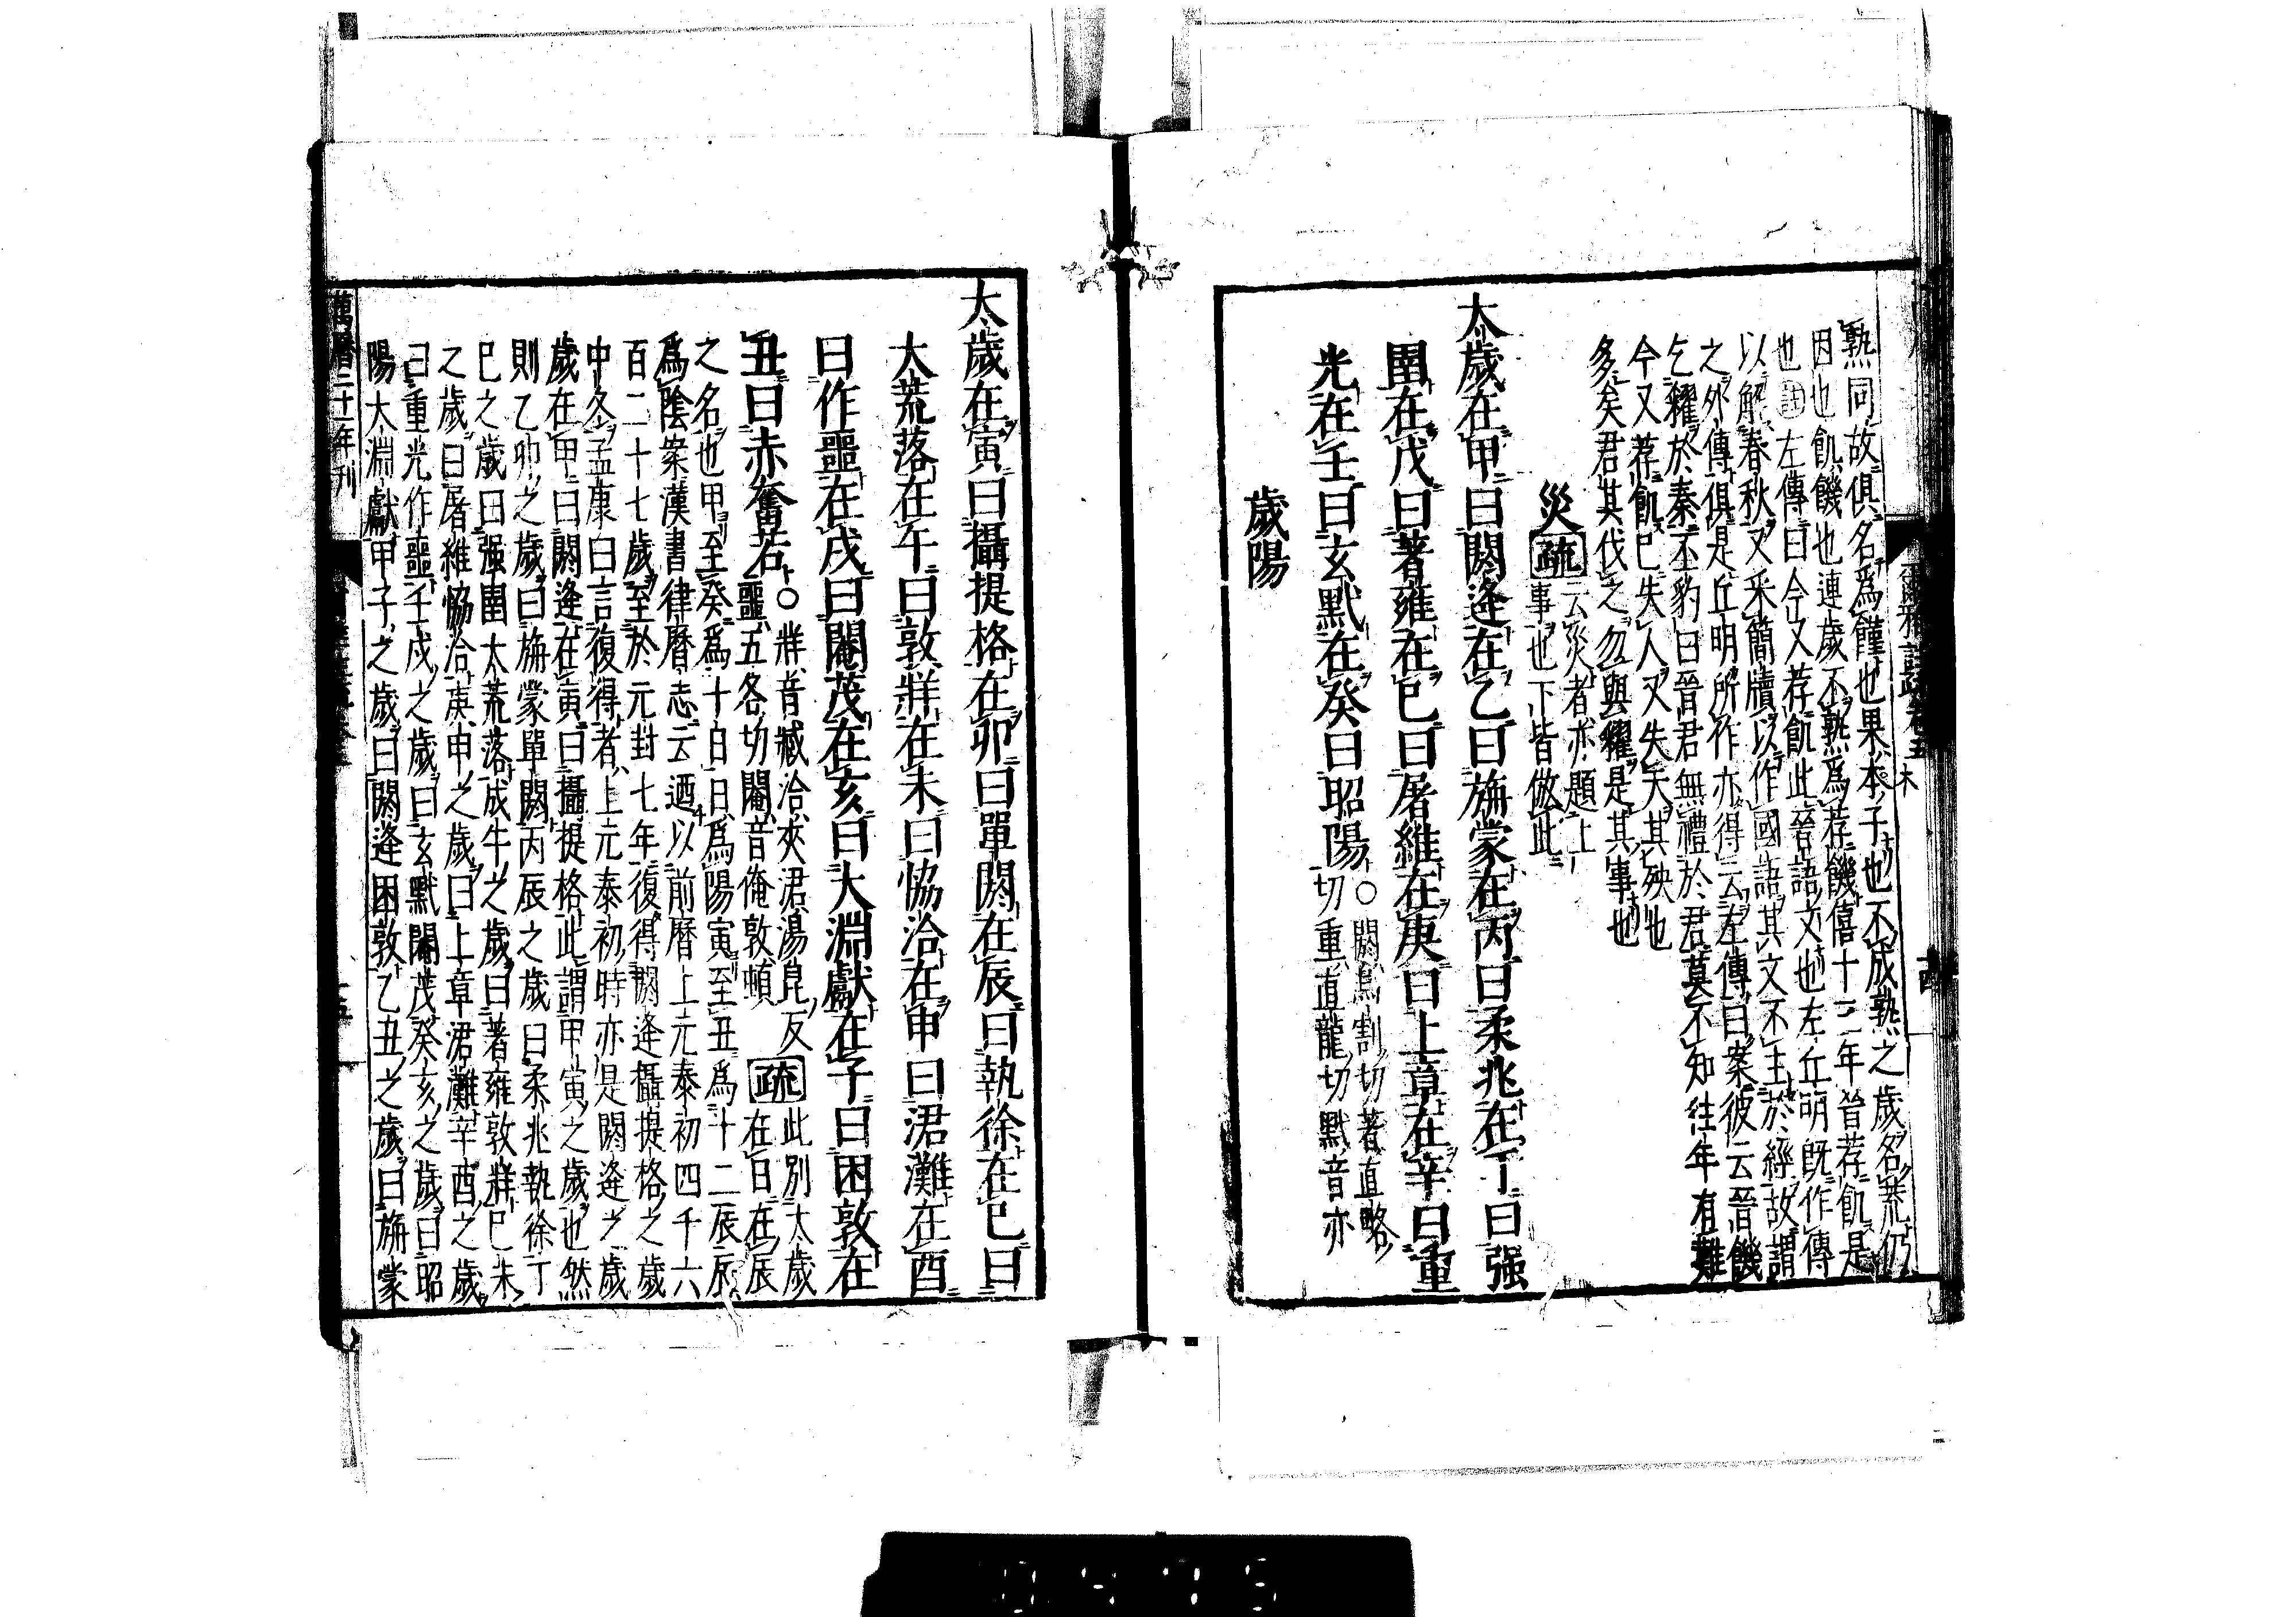 爾雅註疏卷五
熟同故俱名爲饉也果木子也不成熟之歲名荒仍
因也飢饑也連歲不熟爲荐饑僖十三年晉荐飢是
也註左傳曰今又荐飢此晉語文也左丘明既作傳
以解春秋又采簡牘以作國語其文不主於經故謂
之外傳俱是丘明所作亦得云左傳曰案彼云晉饑
乞糴於秦丕豹曰晉君無禮於君莫不知往年有難
今又荐飢巳失人又失天其殃也
多矣君其伐之勿與糴是其事也
災疏云災者亦題上
事也下皆倣此
太歲在甲曰閼逢在乙曰旃蒙在丙曰柔兆在丁曰强
圉在戊曰著雍在巳曰屠維在庚曰上章在辛曰重
光在壬曰玄黓在癸曰昭陽○閼烏割切著直略
切重直龍切黓音亦
歲陽
太歲在寅曰攝提格在卯曰單閼在辰曰執徐在巳曰
大荒落在午曰敦牂在未曰協洽在申曰涒灘在酉
曰作噩在戌曰閹茂在亥曰大淵獻在子曰困敦在
丑曰赤奮若○牂音臧洽夾涒湯昆反
噩五各切閹音俺敦頓
疏此別太歲
在日在辰
之名也甲至癸爲十日日爲陽寅至丑爲十二辰辰
爲陰案漢書律曆志云迺以前曆上元泰初四千六
百二十七歲至於元封七年復得閼逢攝提格之歲
中冬孟康曰言復得者上元泰初時亦是閼逢之歲
歲在甲曰閼逢在寅曰攝提格此謂甲寅之歲也然
則乙卯之歲曰旃蒙單閼丙辰之歲曰柔兆執徐丁
巳之歲曰强圉太荒落戊午之歲曰著雍敦牂巳未
之歲曰屠維協洽庚申之歲曰上章涒灘辛酉之歲
曰重光作噩壬戌之歲曰玄黓閹茂癸亥之歲曰昭
陽大淵獻甲子之歲曰閼逢困敦乙丑之歲曰旃蒙
萬曆二十一年刊